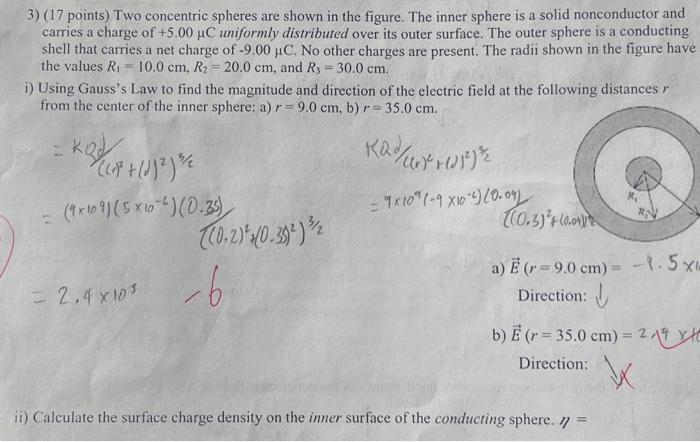 3) (17 points) Two concentric spheres are shown in the figure. The inner sphere is a solid nonconductor and
carries a charge of +5.00 μC uniformly distributed over its outer surface. The outer sphere is a conducting
shell that carries a net charge of -9.00 μC. No other charges are present. The radii shown in the figure have
the values R₁ = 10.0 cm, R₂ = 20.0 cm, and R₃ = 30.0 cm.
i) Using Gauss's Law to find the magnitude and direction of the electric field at the following distances r
from the center of the inner sphere: a) r = 9.0 cm, b) r = 35.0 cm.
= KQd/((r)² + (d)²)^3/2
KQd/((r)² + (d)²)^3/2
= (9x10⁹)(5x10⁻⁶)(0.35)/((0.2)²+(0.35)²)^3/2
= 9x10⁹(-9x10⁻⁶)(0.09)/((0.3)²+(0.09)²)
R₁
R₂
= 2.4x10⁵
-6
a) E⃗ (r = 9.0 cm) = -1.5x
Direction: ↓
b) E⃗ (r = 35.0 cm) = 2.4 x
Direction:
ii) Calculate the surface charge density on the inner surface of the conducting sphere. η =